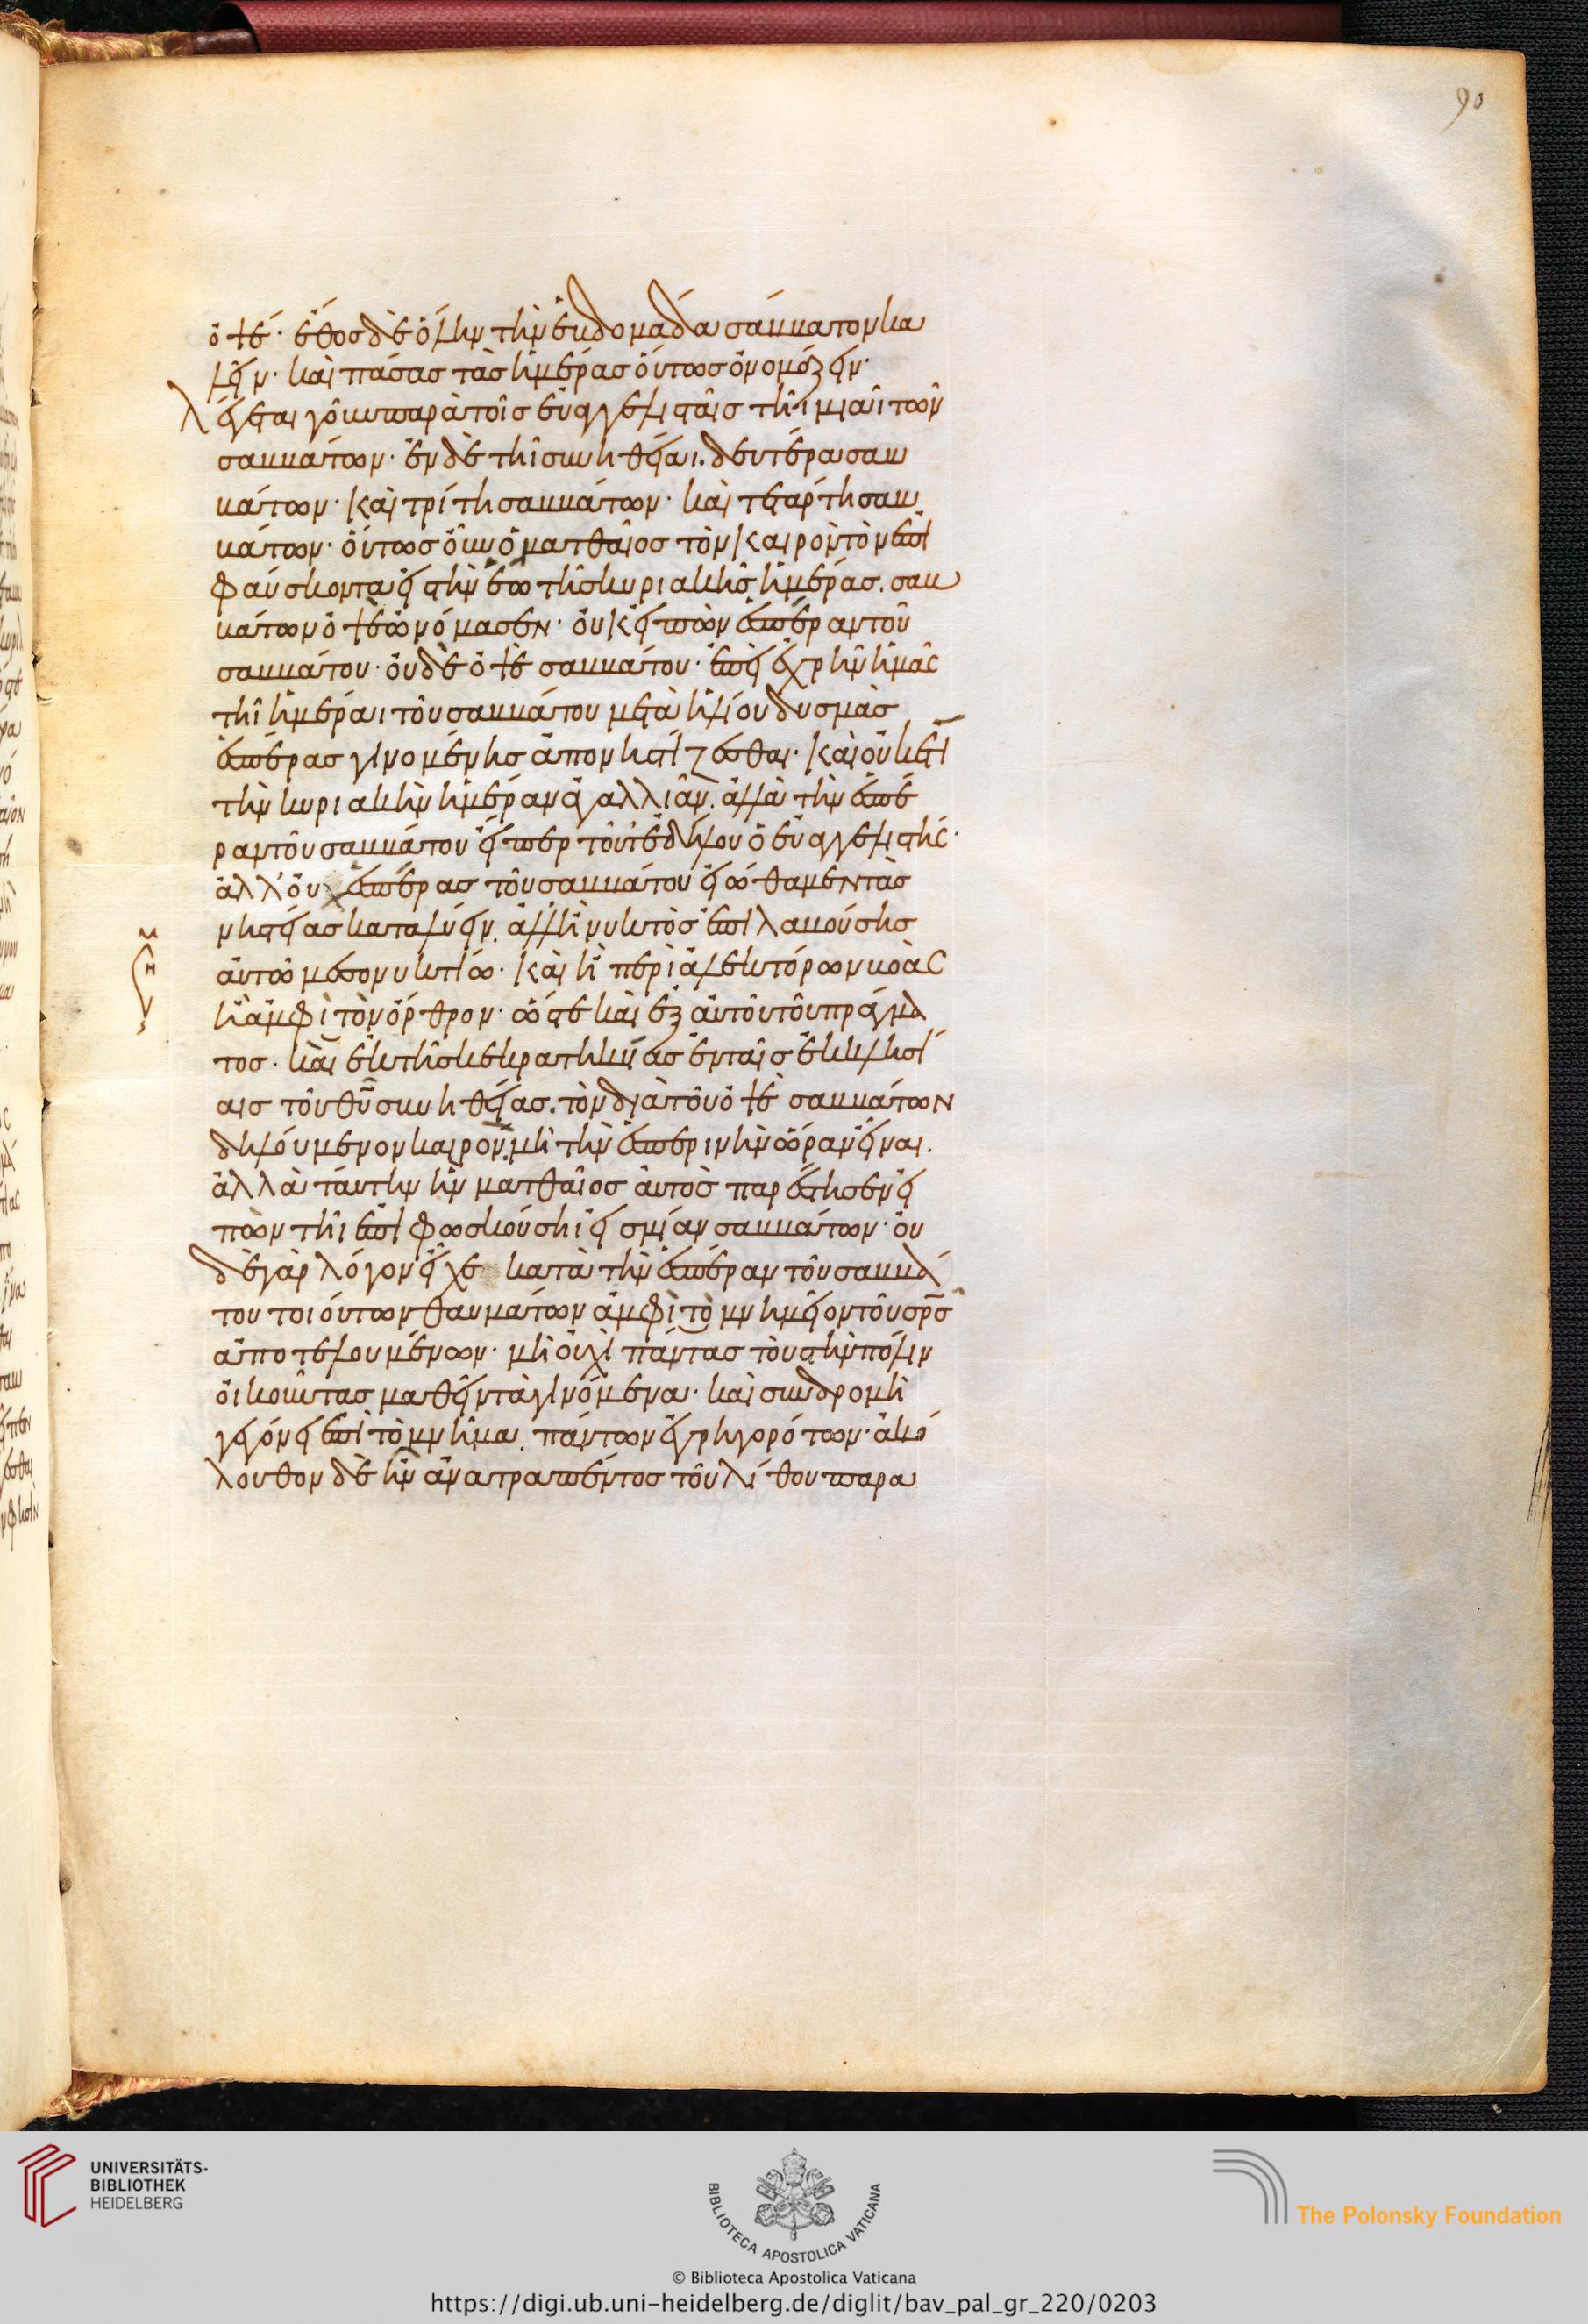 90
ὀψέ· ἔθος δὲ ὅλην τὴν ἑβδομάδα σάββατον κα
λεῖν· καὶ πάσας τὰς ἡμέρας οὕτως ὀνομάζειν·
λέγεται γοῦν παρὰ τοῖς εὐαγγελισταῖς τῆι μιᾶι τῶν
σαββάτων· ἐν δὲ τῆι συνηθείαι. δευτέρα σαβ
βάτων· καὶ τρίτη σαββάτων· καὶ τετάρτη σαβ
βάτων· οὕτως οὖν ὁ ματθαῖος τὸν καιρὸν τὸν ἐπι
φαύσκοντα εἰς τὴν ἕω τῆς κυριακῆς ἡμέρας. σαβ
βάτων ὀψὲ ὠνόμασεν· οὐκ εἰπὼν ἑσπέραν τοῦ
σαββάτου· οὐδὲ ὀψὲ σαββάτου· ἐπεὶ ἐχρῆν ἡμᾶς
τῆι ἡμέραι τοῦ σαββάτου μετὰ ἡλίου δυσμὰς
ἑσπέρας γινομένης ἀπονηστίζεσθαι· καὶ οὐκέτι
τὴν κυριακὴν ἡμέραν ἀγαλλιᾶν. ἀλλὰ τὴν ἑσπέ
ραν τοῦ σαββάτου εἴπερ τοῦτ' ἐδήλου ὁ εὐαγγελιστής·
ἀλλ' οὐχ ἑσπέρας τοῦ σαββάτου εἰώθαμεν τὰς
νηστείας καταλύειν. ἀλλ' ἢ νυκτὸς ἐπιλαβούσης
αὐτῶ μεσονυκτίω· καὶ ἢ περὶ ἀλεκτόρων βοὰς
ἢ ἀμφὶ τὸν ὄρθρον· ὥστε καὶ ἐξ αὐτοῦ τοῦ πράγμα
τος. καὶ ἐκ τῆς κεκρατηκυίας ἐν ταῖς ἐκκλησί
αις τοῦ θυ συνηθείας. τὸν διὰ τοῦ ὀψὲ σαββάτων
δηλούμενον καιρὸν. μὴ τὴν ἑσπερινὴν ὥραν εἶναι.
ἀλλὰ ταύτην ἣν ματθαῖος αὐτὸς παρέστησεν εἰ
πὼν τῆι ἐπιφωσκούσηι εἰς μίαν σαββάτων· οὐ
δὲ γὰρ λόγον εἶχε κατὰ τὴν ἑσπέραν τοῦ σαββά
του τοιούτων θαυμάτων ἀμφὶ τὸ μνημεῖον τοῦ σρς
ἀποτελουμένων· μὴ οὐχὶ πάντας τοὺς τὴν πόλιν
οἰκοῦντας μαθεῖν τὰ γινόμενα· καὶ συνδρομὴ
γεγόνει ἐπὶ τὸ μνῆμα. πάντων ἐγρηγορότων· ἀκό
λουθον δὲ ἦν ἀνατραπέντος τοῦ λίθου παρα
UNIVERSITÄTS-
BIBLIOTHEK
HEIDELBERG
BIBLIOTECA APOSTOLICA VATICANA
The Polonsky Foundation
© Biblioteca Apostolica Vaticana
https://digi.ub.uni-heidelberg.de/diglit/bav_pal_gr_220/0203